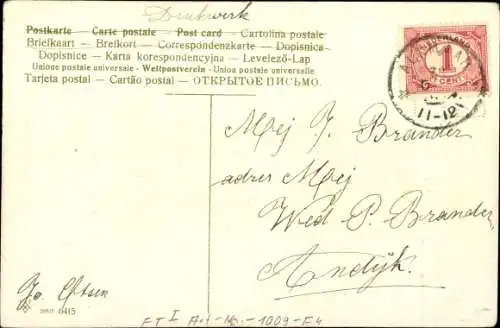 Drukwerk
Postkarte — Carte postale — Post card — Cartolina postale
Briefkaart — Brefkort — Correspondenzkarte — Dopisnica
Dopisnice — Karta korespondencyjna — Levelező-Lap
Unione postale universale — Weltpostverein — Union postale universelle
Tarjeta postal — Cartão postal — ОТКРЫТОЕ ПИСЬМО.
NEDERLAND
1
CENT
11-12V
Mej J. Brander
adres Mej
Wed P. Brander
Andijk.
Jo. Otsen
6415